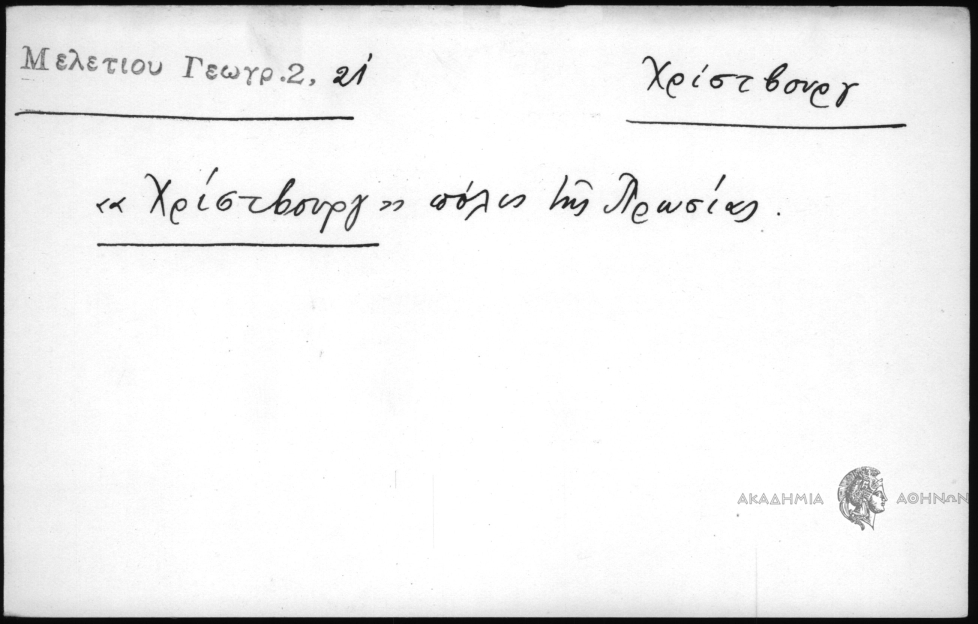 Μελετίου Γεωγρ. 2, 21
Χρίστβουργ
«Χρίστβουργ» πόλις τῆς Πρωσίας.
ΑΚΑΔΗΜΙΑ ΑΘΗΝΩΝ